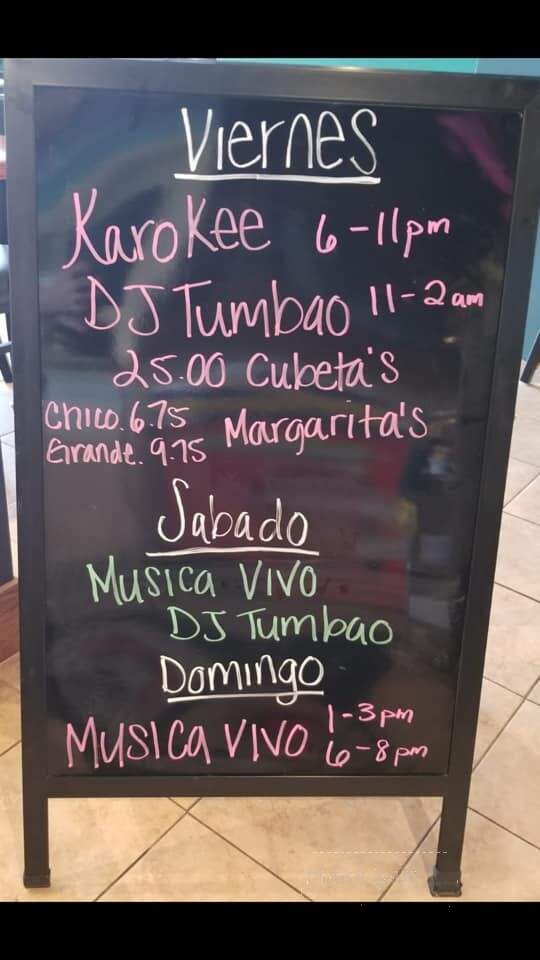 Viernes
KaroKee 6-11pm
DJ Tumbao 11-2am
25.00 Cubeta's
Chico. 6.75 Margarita's
Grande. 9.75
Sabado
Musica VIVO
DJ Tumbao
Domingo
Musica VIVO 1-3pm
6-8pm